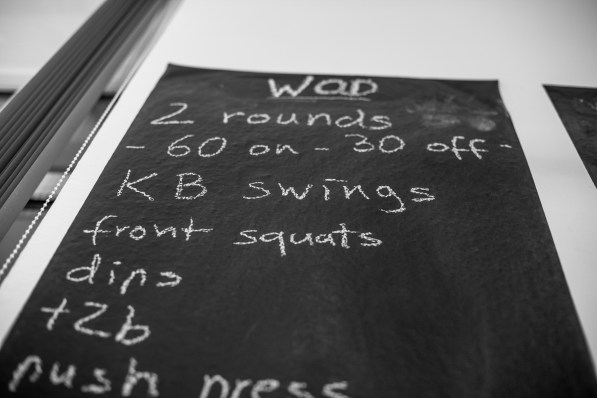 WOD
2 rounds
- 60 on - 30 off -
KB swings
front squats
dips
t2b
push press